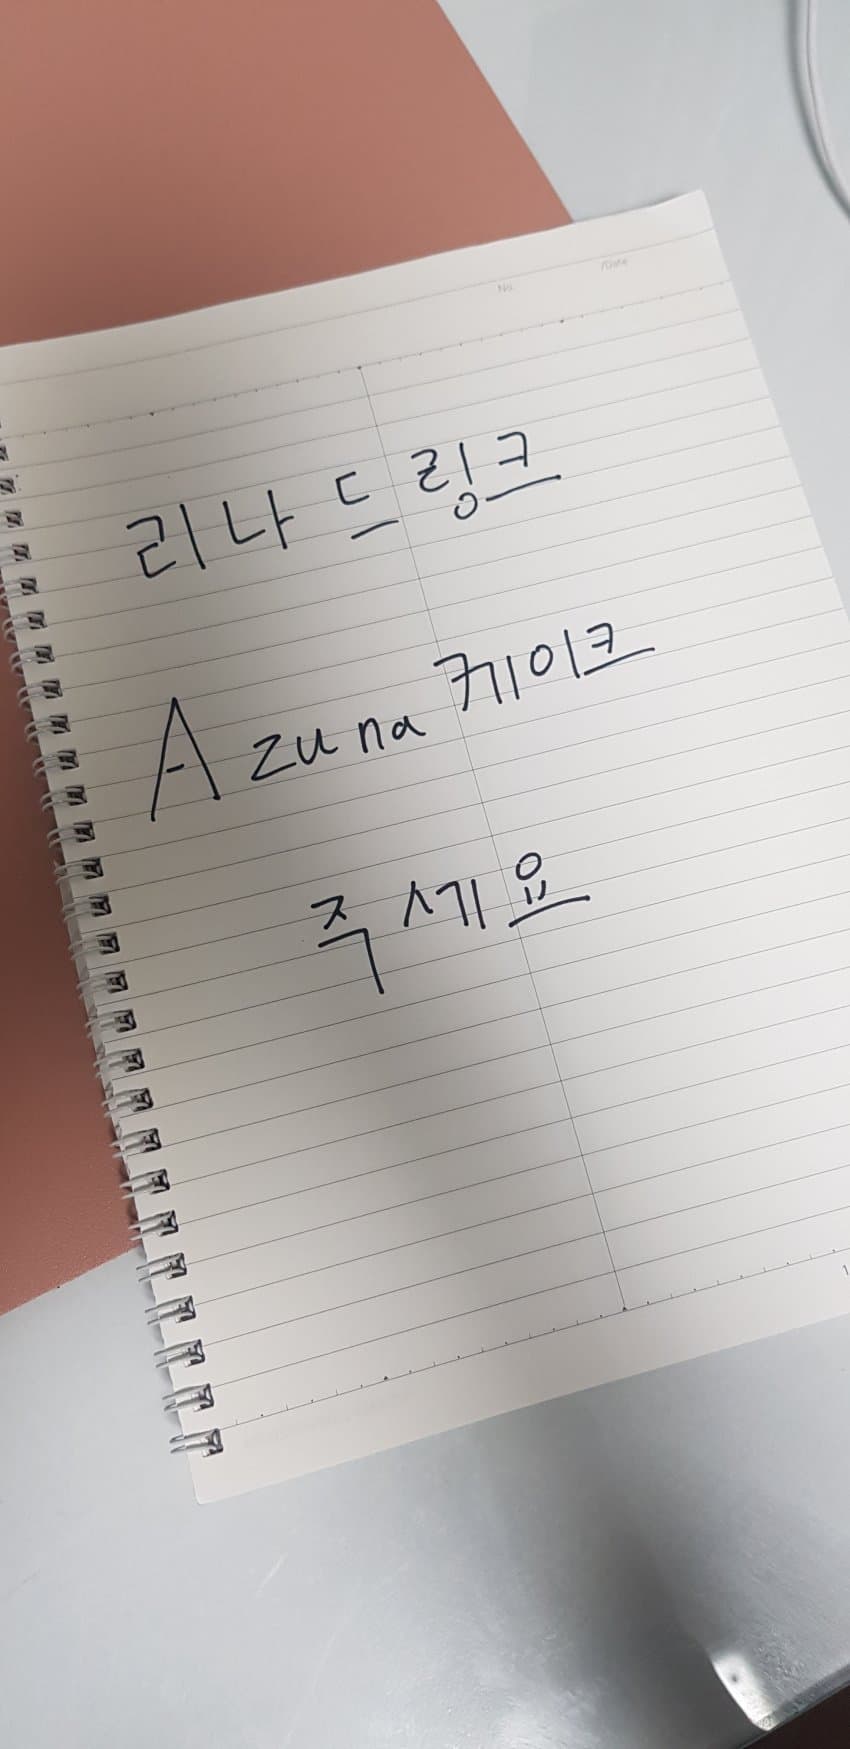 No.
/Date
리나 드링크
Azuna 케이크
주세요